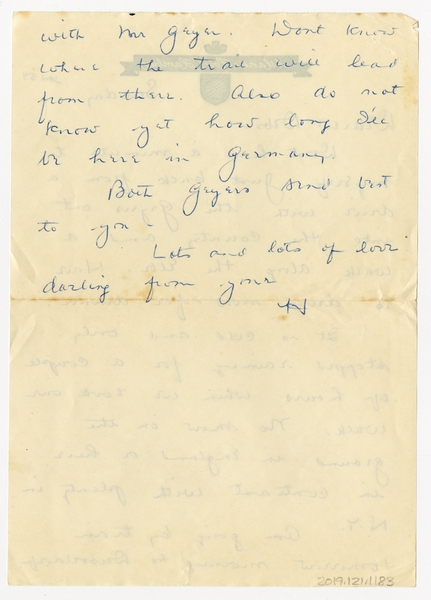 with Mr Geyer. Dont know
where the trail will lead
from there. Also do not
know yet how long I'll
be here in Germany
Both Geyers send best
to you -
Lots and lots of love
darling from your
H
2019.121.1183